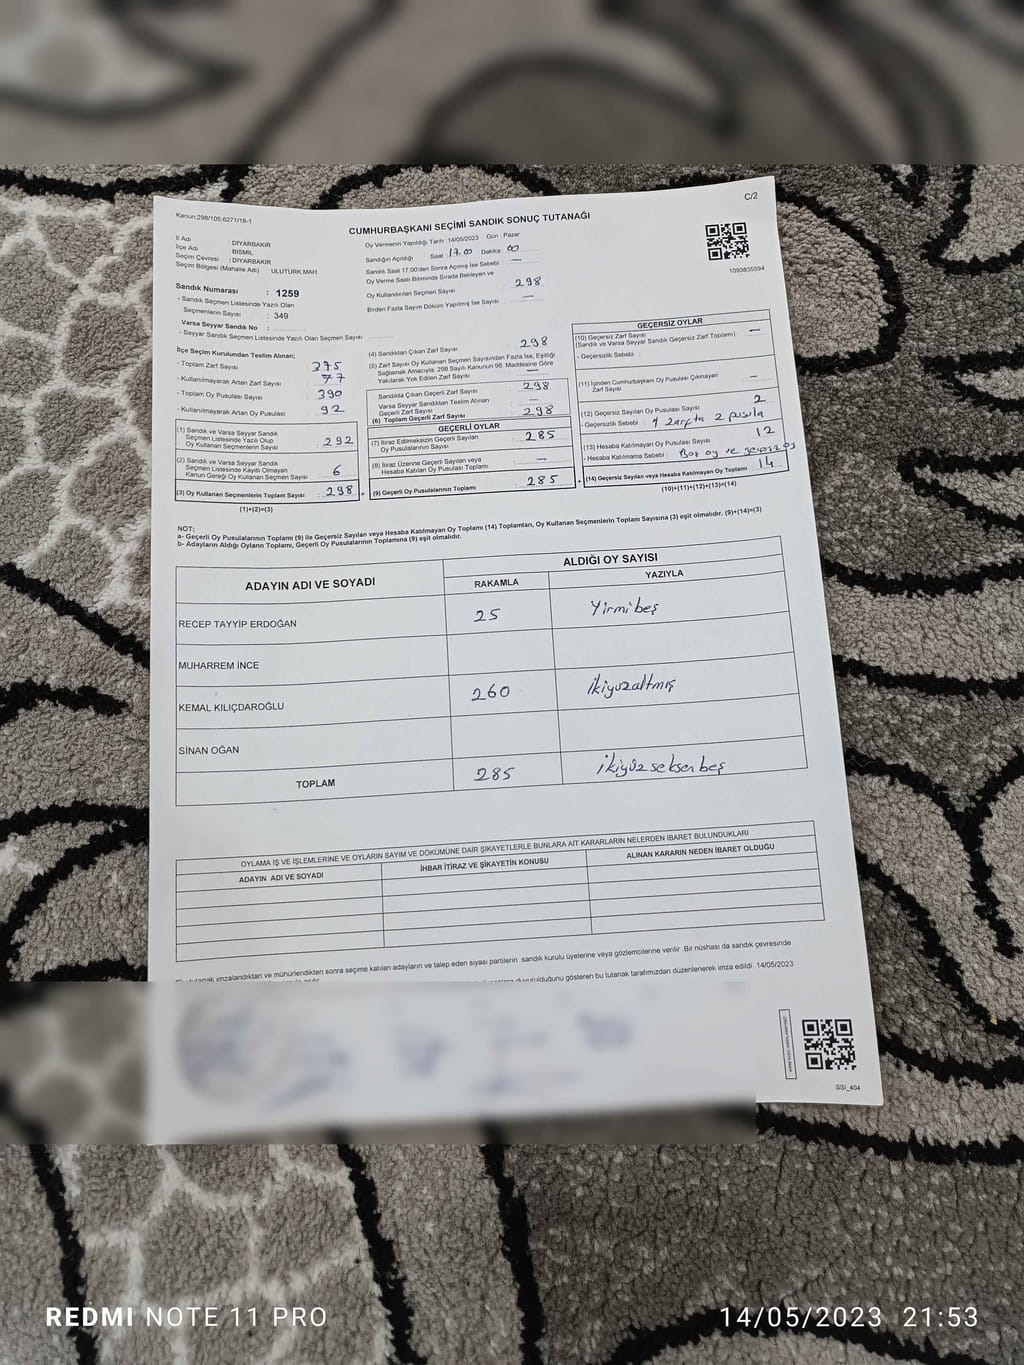 C/2
Kanun;298/105:6271/18-1
CUMHURBAŞKANI SEÇİMİ SANDIK SONUÇ TUTANAĞI
İl Adı : DİYARBAKIR
İlçe Adı : BİSMİL
Seçim Çevresi : DİYARBAKIR
Seçim Bölgesi (Mahalle Adı) : ULUTÜRK MAH.
Sandık Numarası : 1259
- Sandık Seçmen Listesinde Yazılı Olan
Seçmenlerin Sayısı : 349
Varsa Seyyar Sandık No :
- Seyyar Sandık Seçmen Listesinde Yazılı Olan Seçmen Sayısı
Oy Vermenin Yapıldığı Tarih : 14/05/2023 Gün : Pazar
Sandığın Açıldığı Saat : 17.00 Dakika : 00
Sandık Saat 17.00'den Sonra Açılmış İse Sebebi : —
Oy Verme Saati Bitiminde Sırada Bekleyen ve
Oy Kullandırılan Seçmen Sayısı 298
Birden Fazla Sayım Döküm Yapılmış İse Sayısı : —
1093835594
İlçe Seçim Kurulundan Teslim Alınan;
- Toplam Zarf Sayısı : 375
- Kullanılmayarak Artan Zarf Sayısı : 77
- Toplam Oy Pusulası Sayısı : 390
- Kullanılmayarak Artan Oy Pusulası : 92
(1) Sandık ve Varsa Seyyar Sandık
Seçmen Listesinde Yazılı Olup
Oy Kullanan Seçmenlerin Sayısı : 292
(2) Sandık ve Varsa Seyyar Sandık
Seçmen Listesinde Kayıtlı Olmayan
Kanun Gereği Oy Kullanan Seçmen Sayısı : 6
(3) Oy Kullanan Seçmenlerin Toplam Sayısı : 298
(1)+(2)=(3)
(4) Sandıktan Çıkan Zarf Sayısı : 298
(5) Zarf Sayısı Oy Kullanan Seçmen Sayısından Fazla İse, Eşitliği
Sağlamak Amacıyla; 298 Sayılı Kanunun 98. Maddesine Göre
Yakılarak Yok Edilen Zarf Sayısı : —
Sandıkta Çıkan Geçerli Zarf Sayısı : 298
Varsa Seyyar Sandıktan Teslim Alınan
Geçerli Zarf Sayısı : —
(6) Toplam Geçerli Zarf Sayısı : 298
GEÇERLİ OYLAR
(7) İtiraz Edilmeksizin Geçerli Sayılan
Oy Pusulalarının Sayısı : 285
(8) İtiraz Üzerine Geçerli Sayılan veya
Hesaba Katılan Oy Pusulası Toplamı : —
(9) Geçerli Oy Pusulalarının Toplamı : 285
GEÇERSİZ OYLAR
(10) Geçersiz Zarf Sayısı : —
(Sandık ve Varsa Seyyar Sandık Geçersiz Zarf Toplamı)
- Geçersizlik Sebebi :
(11) İçinden Cumhurbaşkanı Oy Pusulası Çıkmayan
Zarf Sayısı : —
(12) Geçersiz Sayılan Oy Pusulası Sayısı : 2
- Geçersizlik Sebebi : 1 zarfta 2 pusula
(13) Hesaba Katılmayan Oy Pusulası Sayısı : 12
- Hesaba Katılmama Sebebi : Boş oy ve geçersiz oy
(14) Geçersiz Sayılan veya Hesaba Katılmayan Oy Toplamı : 14
(10)+(11)+(12)+(13)=(14)
NOT:
a- Geçerli Oy Pusulalarının Toplamı (9) ile Geçersiz Sayılan veya Hesaba Katılmayan Oy Toplamı (14) Toplamları, Oy Kullanan Seçmenlerin Toplam Sayısına (3) eşit olmalıdır. (9)+(14)=(3)
b- Adayların Aldığı Oyların Toplamı, Geçerli Oy Pusulalarının Toplamına (9) eşit olmalıdır.
ADAYIN ADI VE SOYADI ALDIĞI OY SAYISI
RAKAMLA YAZIYLA
RECEP TAYYİP ERDOĞAN 25 Yirmibeş
MUHARREM İNCE
KEMAL KILIÇDAROĞLU 260 ikiyüzaltmış
SİNAN OĞAN
TOPLAM 285 ikiyüzseksenbeş
OYLAMA İŞ VE İŞLEMLERİNE VE OYLARIN SAYIM VE DÖKÜMÜNE DAİR ŞİKAYETLERLE BUNLARA AİT KARARLARIN NELERDEN İBARET BULUNDUKLARI
ADAYIN ADI VE SOYADI İHBAR İTİRAZ VE ŞİKAYETİN KONUSU ALINAN KARARIN NEDEN İBARET OLDUĞU
tutanak imzalandıktan ve mühürlendikten sonra seçime katılan adayların ve talep eden siyasi partilerin sandık kurulu üyelerine veya gözlemcilerine verilir. Bir nüshası da sandık çevresinde
duyurulduğunu gösteren bu tutanak tarafımızdan düzenlenerek imza edildi. 14/05/2023
SSI_404
REDMI NOTE 11 PRO
14/05/2023 21:53